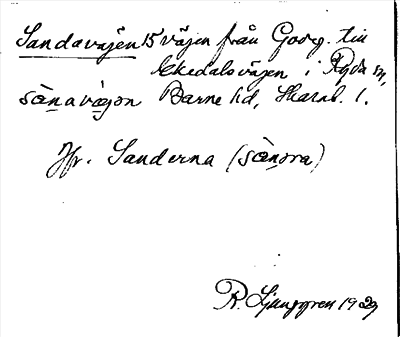 Sandavägen 15 vägen från Georg. till
Ekedalsvägen i Ryda sn,
sànavàgən Barne hd, Skarab. l.
Jfr. Sanderna (sànəra)
R. Ljunggren 1929